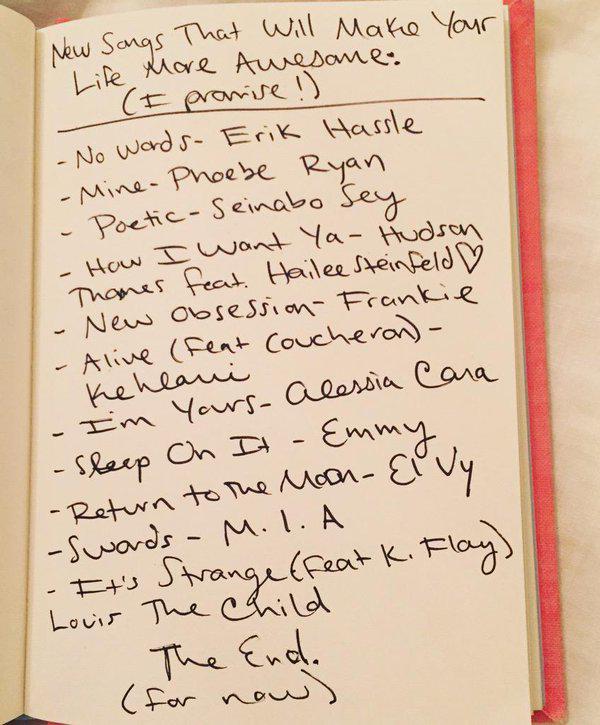 New Songs That Will Make Your
Life More Awesome:
(I promise!)
- No Words- Erik Hassle
- Mine- Phoebe Ryan
- Poetic- Seinabo Sey
- How I Want Ya- Hudson
Thames feat. Hailee Steinfeld♡
- New Obsession- Frankie
- Alive (Feat Coucheron)-
Kehlani
- I'm Yours- Alessia Cara
- Sleep On It - Emmy
- Return to The Moon- El Vy
- Swords - M.I.A
- It's Strange (Feat K. Flay)
Louis The Child
The End.
(for now)